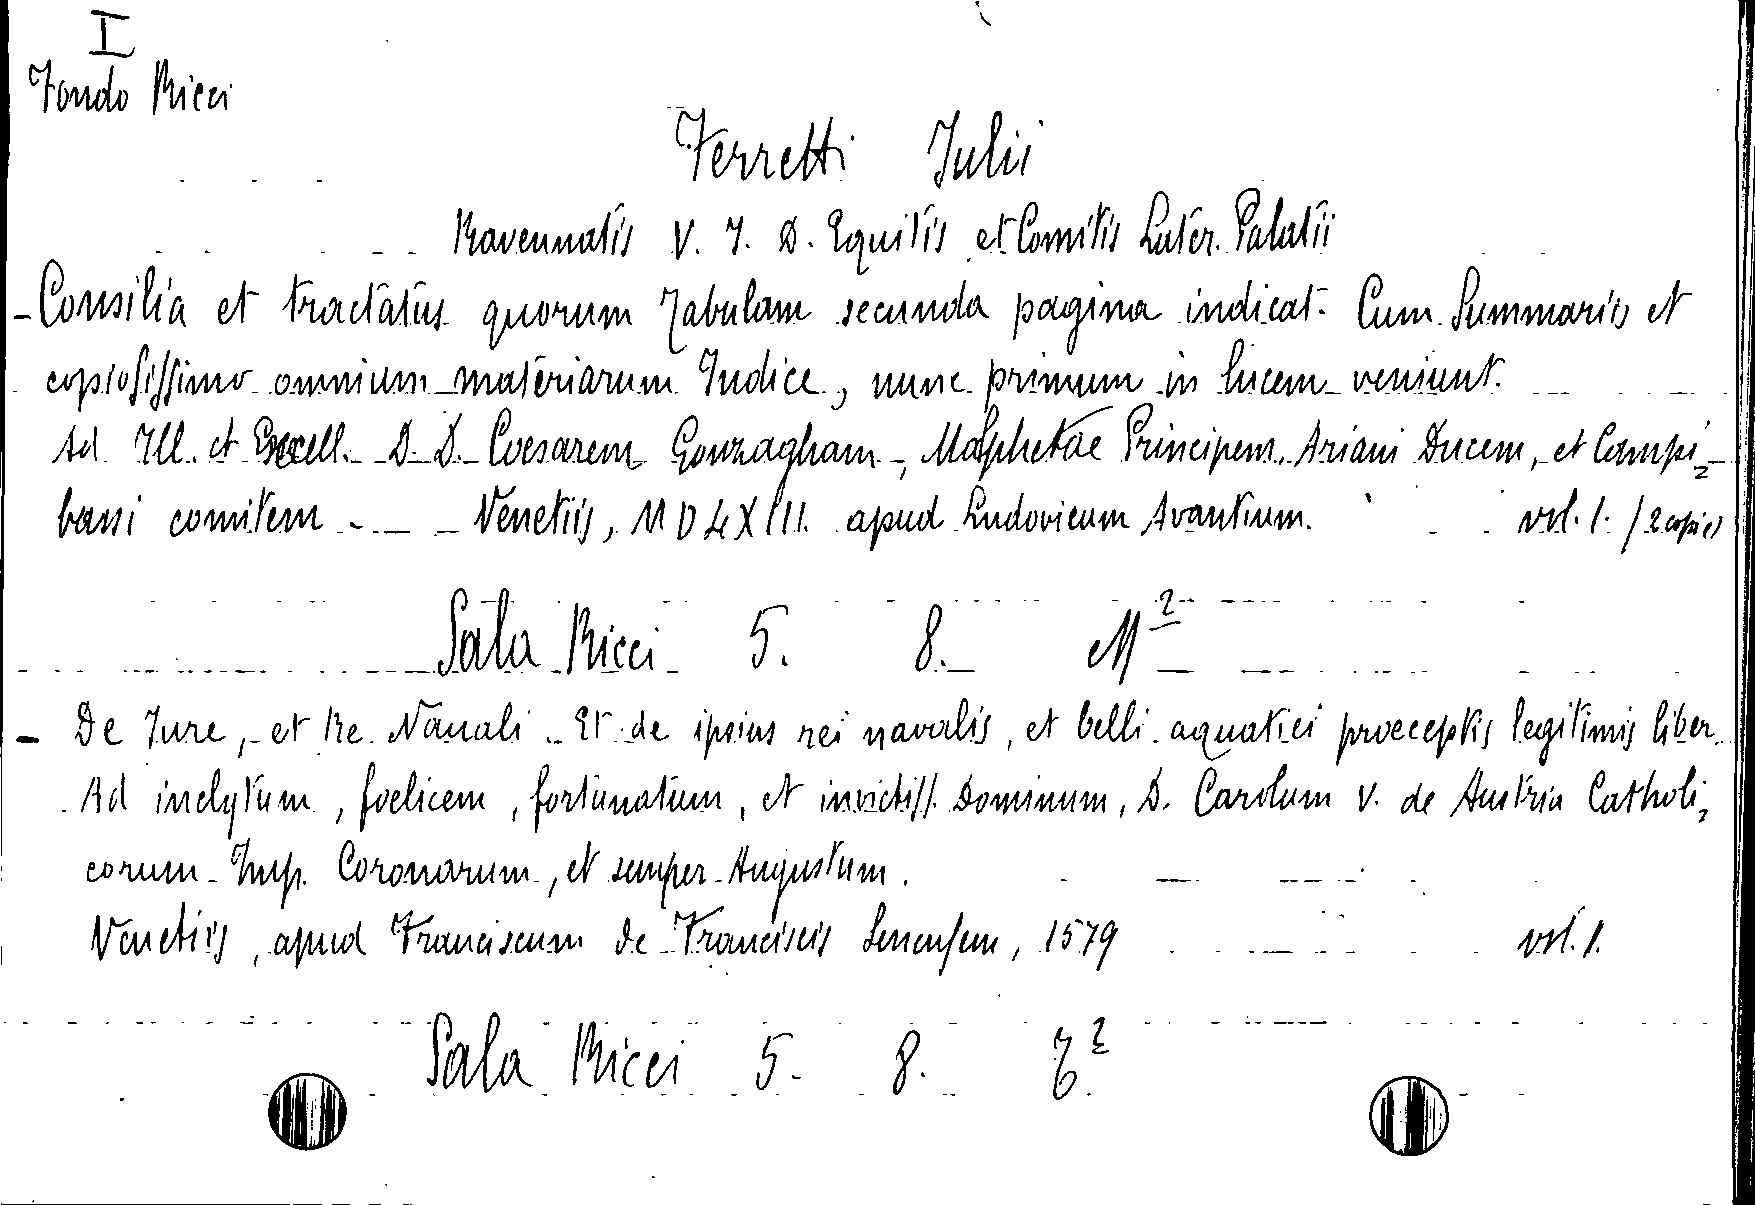 I
Fondo Ricci
Ferretti Julii
Ravennatis V. J. D. Equitis et Comitis Later. Palatii
- Consilia et tractatus quorum Tabulam secunda pagina indicat. Cum Summariis et
copiosissimo omnium materiarum Indice, nunc primum in lucem veniunt.
Ad Ill. et Excell. D. D. Coesarem Gonzagham, Molphetae Principem, Ariani Ducem, et Campi=
bassi comitem - Venetiis, MDLXIII. apud Ludovicum Avantium. vol. 1. / 2 copie)
Sala Ricci 5. 8. M²
- De Jure, et Re Nauali. Et de ipsius rei navalis, et belli aquatici proeceptis legitimis liber.
Ad inclytum, foelicem, fortunatum, et invictiss. Dominum, D. Carolum V. de Austria Catholi=
corum Imp. Coronarum, et semper Augustum.
Venetiis, apud Franciscum de Franciscis Senensem, 1579 vol. 1.
Sala Ricci 5. 8.